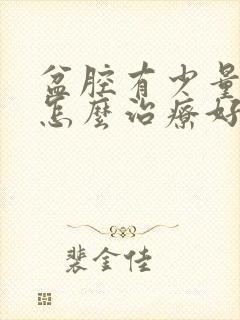 盆腔有少量
怎麼治療好
裴金佳